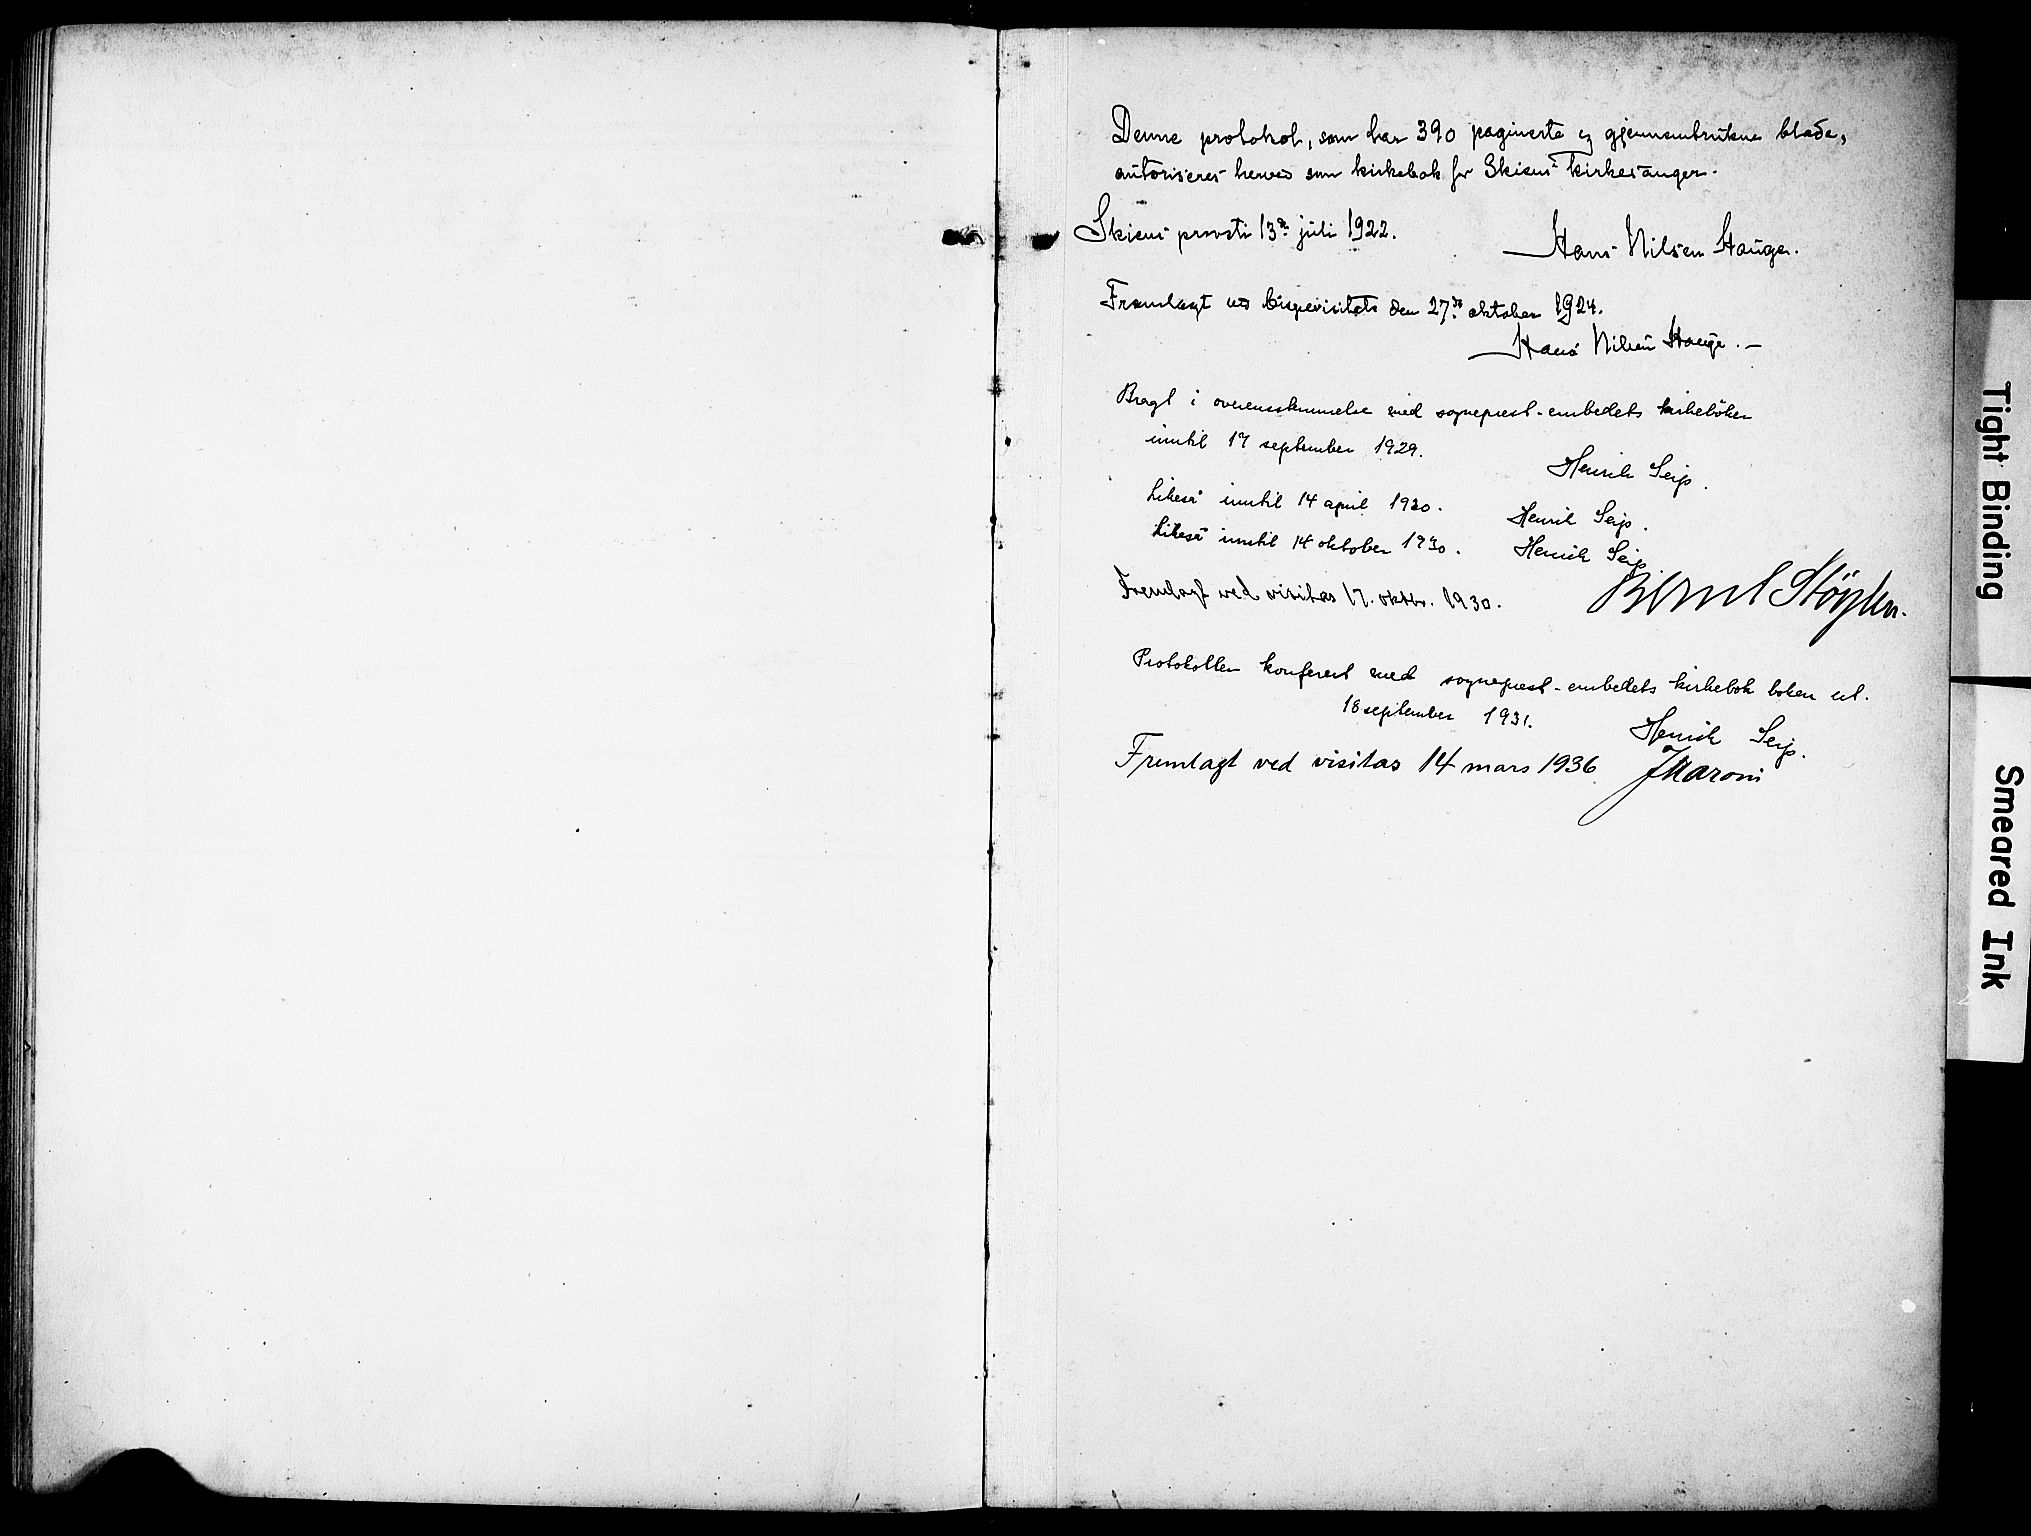 Denne protokol, som har 390 paginerte og gjennemtrukne blade,
autoriseres herved som kirkebok for Skiens kirkesanger.
Skiens prosti 13de juli 1922.
Hans Nilsen Hauge.
Fremlagt ved bispevisitats den 27de oktober 1924.
Hans Nilsen Hauge. –
Bragt i overensstemmelse med sogneprest-embedets kirkebøker
inntil 17 september 1929.
Henrik Seip.
Likeså inntil 14 april 1930. Henrik Seip.
Likeså inntil 14 oktober 1930. Henrik Seip
Fremlagt ved visitas 17. oktbr. 1930. Bernt Støylen.
Protokollen konferert med sogneprest-embedets kirkebok boken ut.
18 september 1931.
Henrik Seip.
Fremlagt ved visitas 14 mars 1936. JMaroni
Tight Binding
Smeared Ink